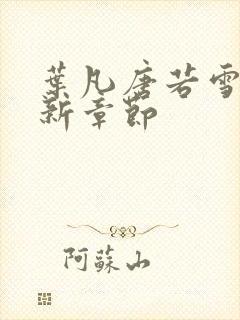 葉凡唐若雪
新章節
阿蘇山